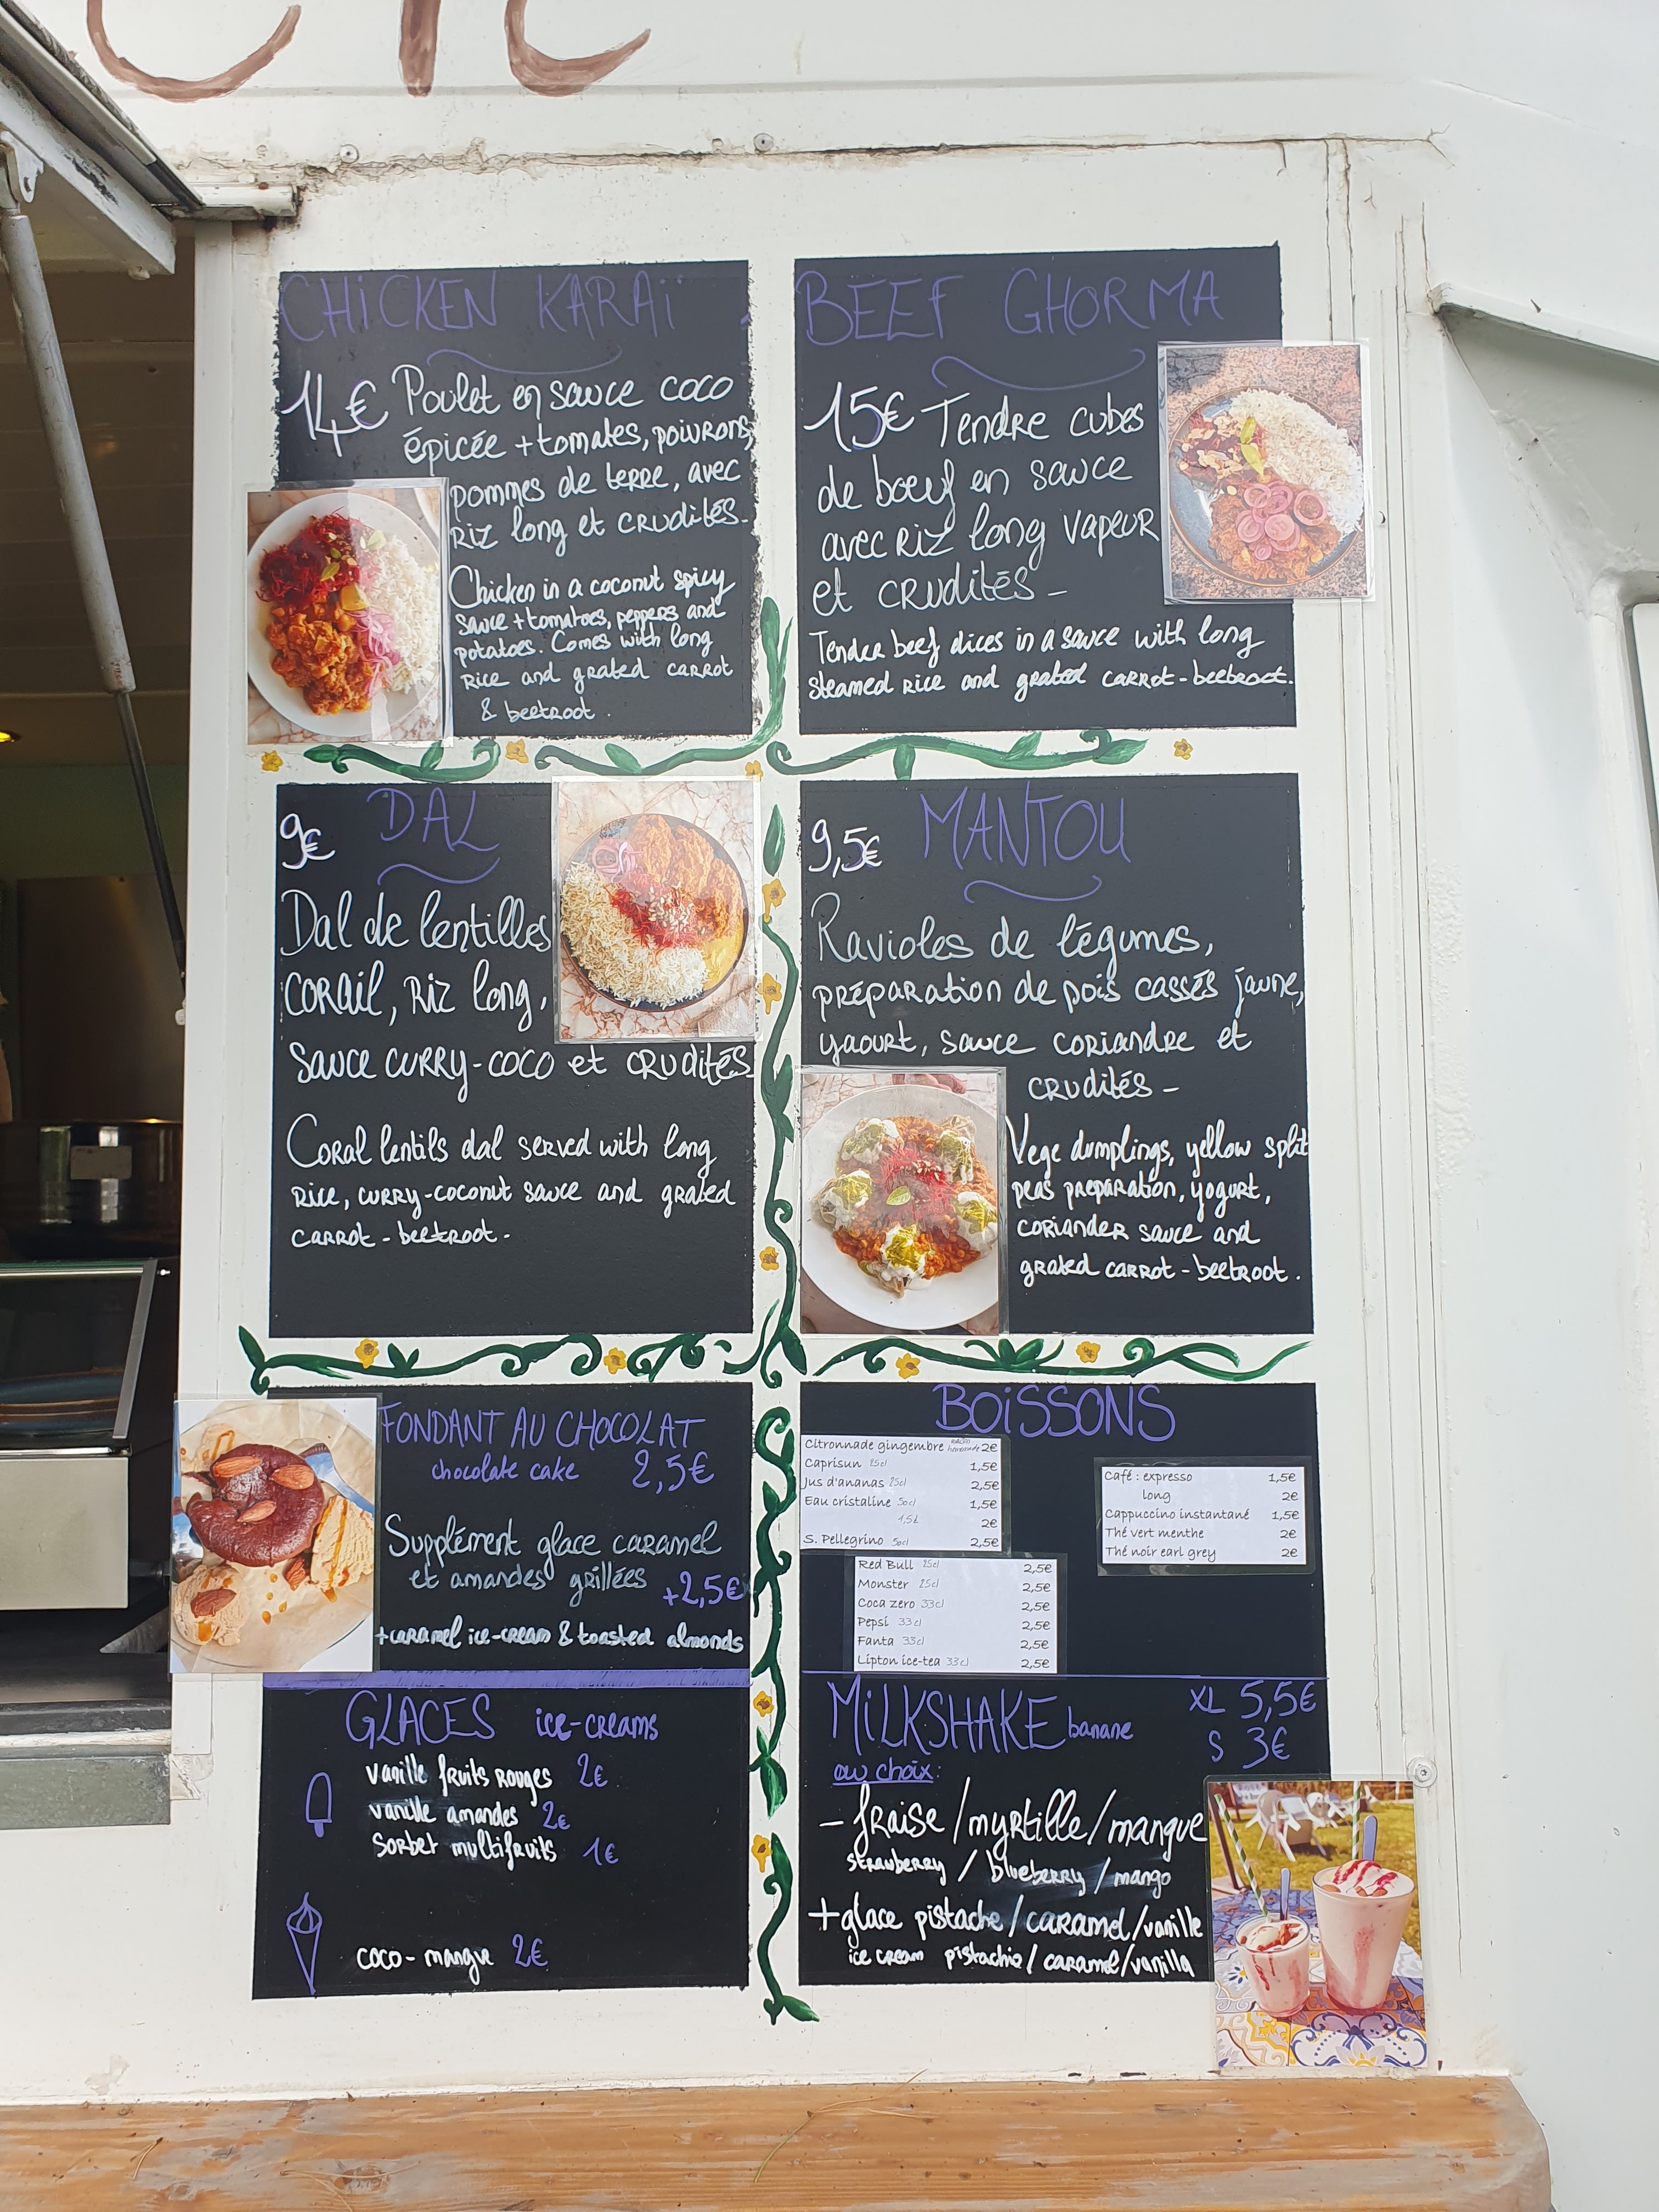 CHiCKEN KARAÏ
14€ Poulet en sauce coco
épicée + tomates, poivrons,
pommes de terre, avec
Riz long et CRUDITÉS.
Chicken in a coconut spicy
sauce + tomatoes, peppers and
potatoes. Comes with long
Rice and grated carrot
& beetroot.
BEEF GHORMA
15€ Tendre cubes
de boeuf en sauce
avec Riz long vapeur
et crudités -
Tender beef dices in a sauce with long
steamed rice and grated carrot-beetroot.
9€ DAL
Dal de lentilles
CORAIL, Riz long,
sauce curry-coco et crudités
Coral lentils dal served with long
Rice, curry-coconut sauce and grated
carrot - beetroot.
9,5€ MANTOU
Ravioles de légumes,
préparation de pois cassés jaune,
yaourt, sauce coriandre et
crudités -
Vege dumplings, yellow split
peas preparation, yogurt,
coriander sauce and
grated carrot - beetroot.
FONDANT AU CHOCOLAT
chocolate cake 2,5€
Supplément glace caramel
et amandes grillées +2,5€
+caramel ice-cream & toasted almonds
GLACES ice-creams
vanille fruits rouges 2€
vanille amandes 2€
sorbet multifruits 1€
coco-mangue 2€
BOiSSONS
Citronnade gingembre 2€
Caprisun 25cl 1,5€
Jus d'ananas 25cl 2,5€
Eau cristaline 50cl 1,5€
1,5L 2€
S. Pellegrino 50cl 2,5€
Café : expresso 1,5€
long 2€
Cappuccino instantané 1,5€
Thé vert menthe 2€
Thé noir earl grey 2€
Red Bull 25cl 2,5€
Monster 25cl 2,5€
Coca zero 33cl 2,5€
Pepsi 33cl 2,5€
Fanta 33cl 2,5€
Lipton ice-tea 33cl 2,5€
MiLKSHAKE banane XL 5,5€
S 3€
au choix:
- fraise / myrtille / mangue
strawberry / blueberry / mango
+ glace pistache / caramel / vanille
ice cream pistachio / caramel / vanilla